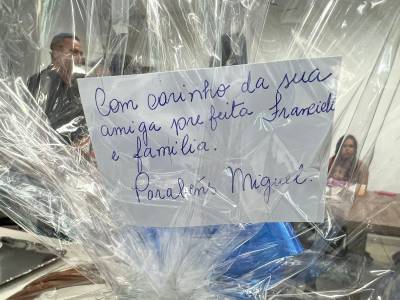 Com carinho da sua
amiga prefeita Franciele
e família.
Parabéns Miguel.